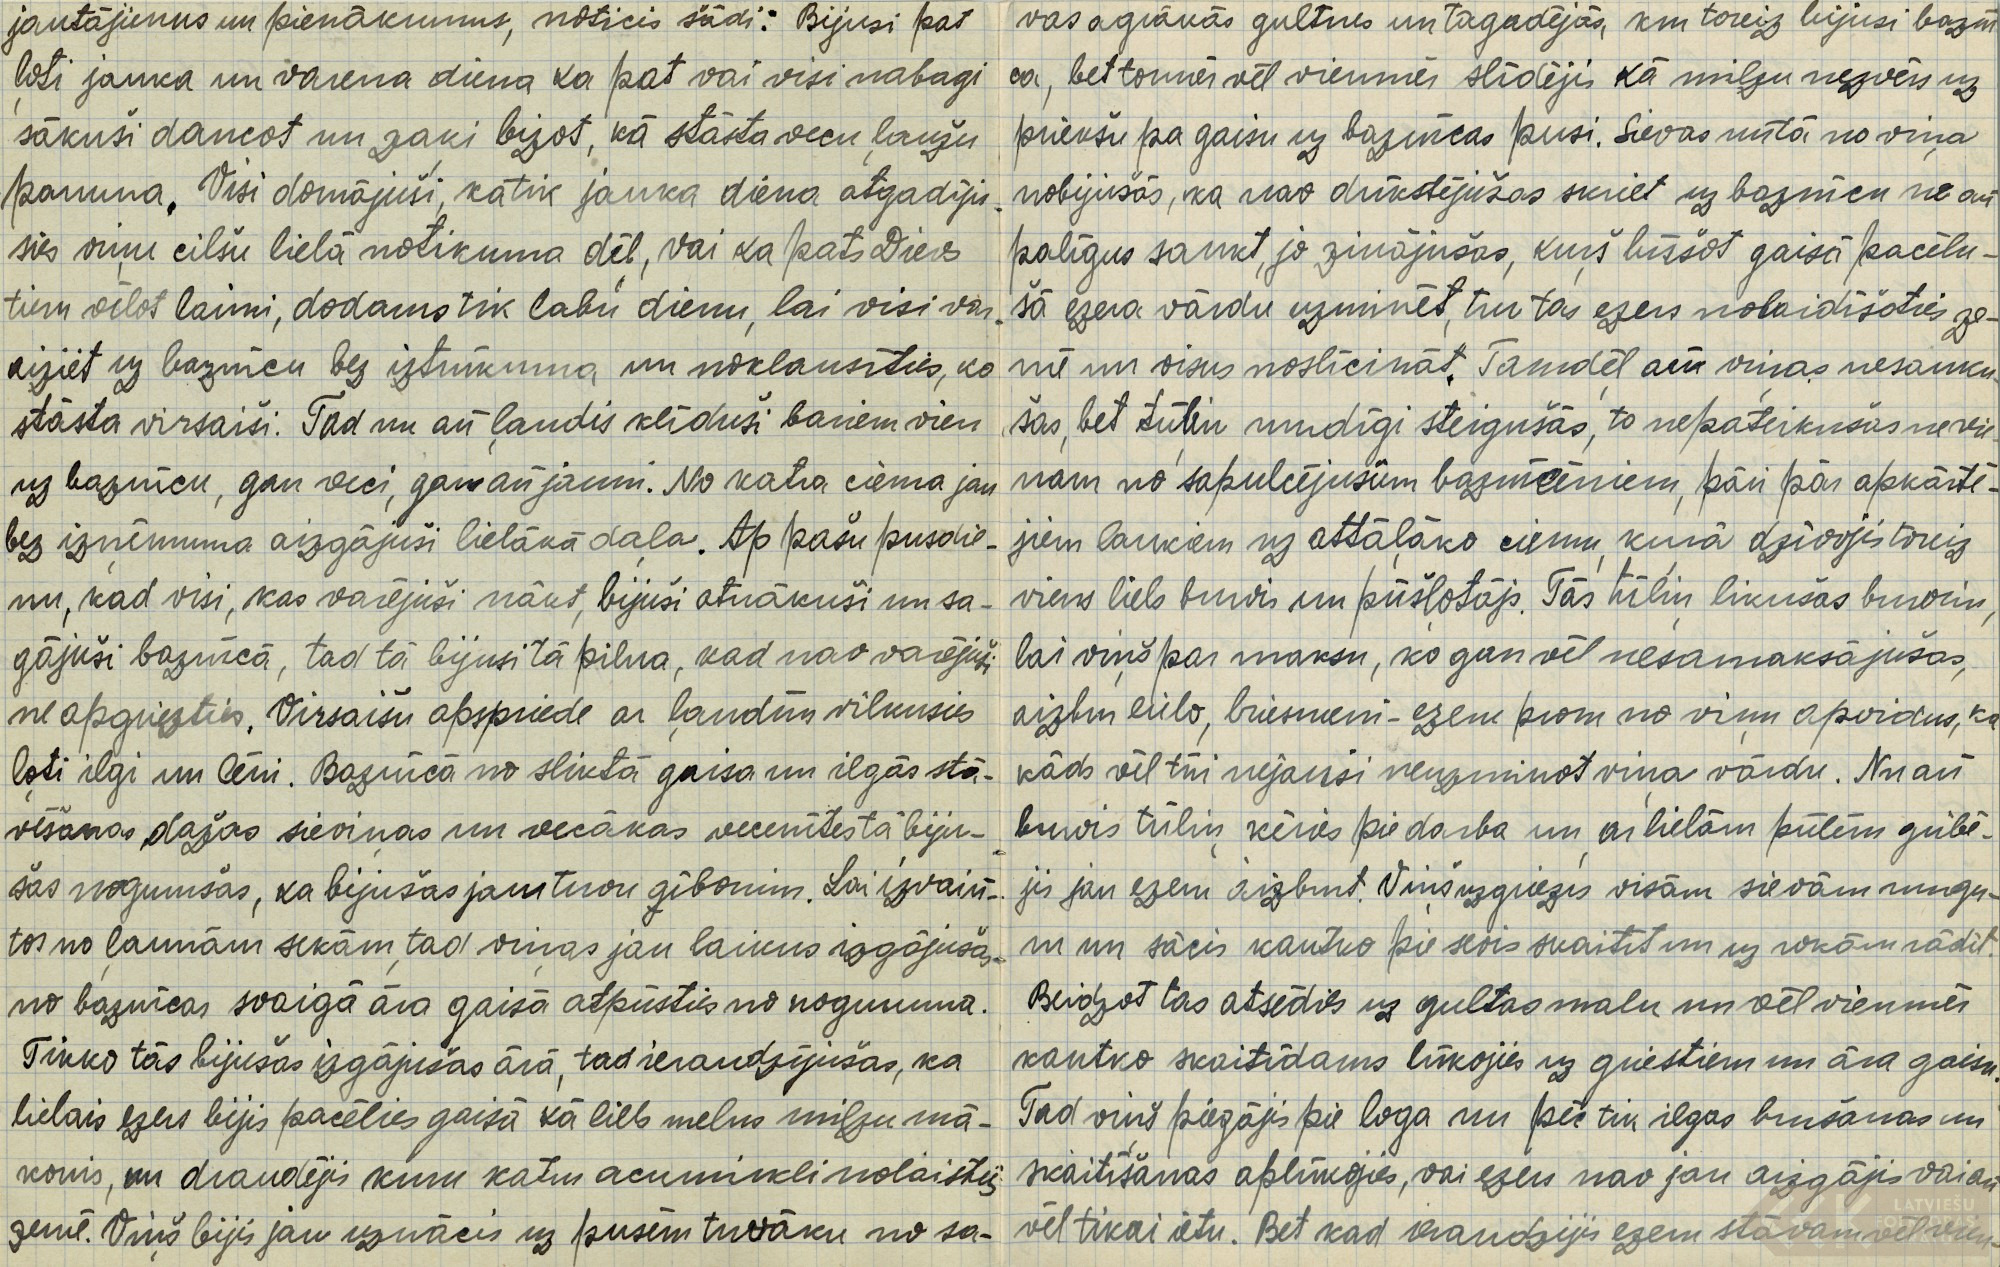 jautājienus un pienākumus, noticis šādi: Bijusi pat
ļoti jauka un varena diena ka pat vai visi nabagi
sākuši dancot un zaķi bizot, kā stāsta vecu ļaužu
paruna. Visi domājuši, ka tik jauka diena atgadīju-
sies viņu cilšu lielā notikuma dēļ, vai ka pats Dievs
tiem vēlot laimi, dodams tik labu dienu, lai visi var
aiziet uz baznīcu bez iztrūkuma un noklausīties, ko
stāsta virsaiši. Tad nu arī ļaudis klīduši bariem vien
uz baznīcu, gan veci, gan arī jauni. No katra ciema jau
bez izņēmuma aizgājuši lielākā daļa. Ap pašu pusdie-
nu, kad visi, kas varējuši nākt, bijuši atnākuši un sa-
gājuši baznīcā, tad tā bijusi tā pilna, kad nav varējuši
ne apgriezties. Virsaišu apspriede ar ļaudīm vilkusies
ļoti ilgi un lēni. Baznīcā no sliktā gaisa un ilgās stā-
vēšanas dažas sieviņas un vecākas vecenītes tā biju-
šas nogurušas, ka bijušas jau tuvu ģībonim. Lai izvairī-
tos no ļaunām sekām, tad viņas jau laikus izgājušas
no baznīcas svaigā āra gaisā atpūsties no noguruma.
Tikko tās bijušas izgājušas ārā, tad ieraudzījušas, ka
lielais ezers bijis pacēlies gaisā kā liels melns milzu mā-
konis, un draudējis kuru katru acumirkli nolaisties
zemē. Viņš bijis jau uznācis uz pusēm tuvāku no sa-
vas agrākās gultnes un tagadējās, kur toreiz bijusi baznī
ca, bet tomēr vēl vienmēr slīdējis kā milzu nezvērs uz
priekšu pa gaisu uz baznīcas pusi. Sievas un tā no viņa
nobijušās, ka nav drīkstējušas skriet uz baznīcu ne arī
palīgus saukt, jo zinājušas, kurš būšot gaisā pacēlu-
šā ezera vārdu uzminēt, tur tas ezers nolaidīšoties ze-
mē un visus noslīcināt. Tamdēļ arī viņas nesauku-
šas, bet tūliņ mudīgi steigušās, to nepateikušas nevie-
nam no sapulcējušiem baznīcēniem, pāri pār apkārtē-
jiem laukiem uz attāļāko ciemu, kurā dzīvojis toreiz
viens liels burvis un pūšļotājs. Tās tūliņ likušas burvim,
lai viņš par maksu, ko gan vēl nesamaksājušas,
aizbur lielo, briesmeni-ezeru prom no viņu apvidus, ka
kāds vēl tūri nejauši neuzminot viņa vārdu. Nu arī
burvis tūliņ ķēries pie darba un ar lielām pūlēm gribē-
jis jau ezeru aizburt. Viņš uzgriezis visām sievām mugu-
ru un sācis kautko pie sevis skaitīt un uz rokām rādīt.
Beidzot tas atsēdies uz gultas malu un vēl vienmēr
kautko skaitīdams lūkojies uz griestiem un āra gaisu.
Tad viņš piegājis pie loga un pēc tik ilgas buršanas un
skaitīšanas aplūkojies, vai ezers nav jau aizgājis vai arī
vēl tikai ietu. Bet kad ieraudzījis ezeru stāvam vēl vien-